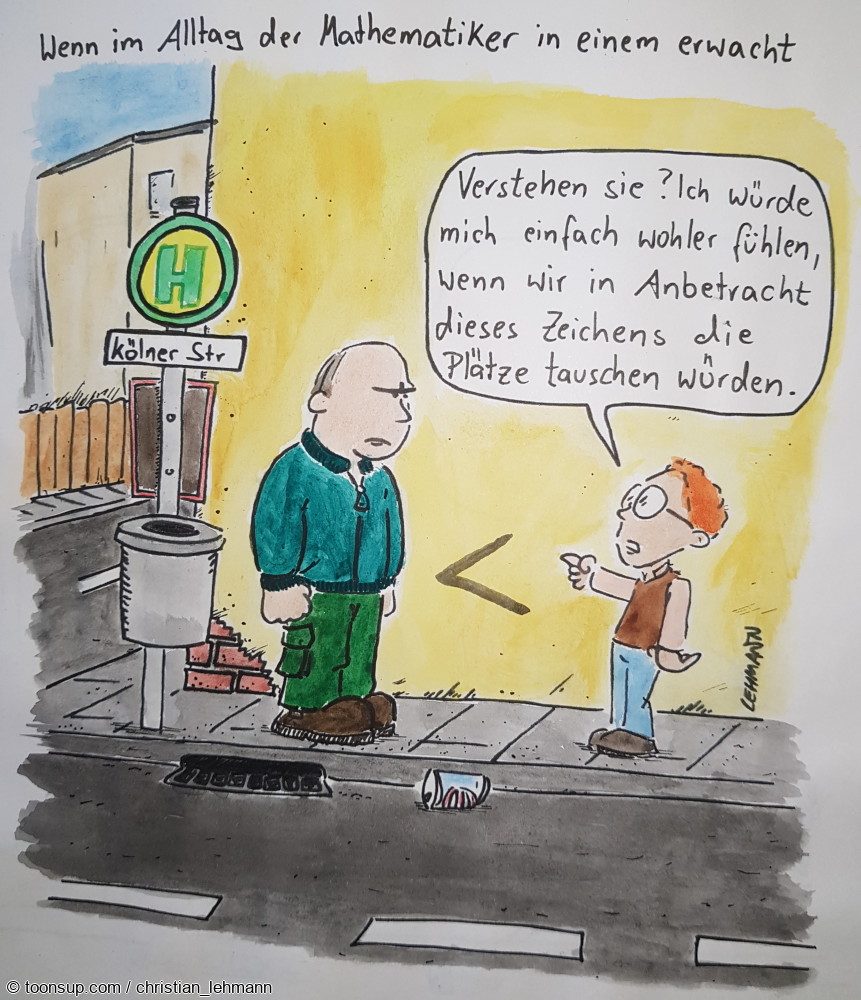 Wenn im Alltag der Mathematiker in einem erwacht
Verstehen sie? Ich würde
mich einfach wohler fühlen,
wenn wir in Anbetracht
dieses Zeichens die
Plätze tauschen würden.
H
Kölner Str
<
LEHMANN
© toonsup.com / christian_lehmann